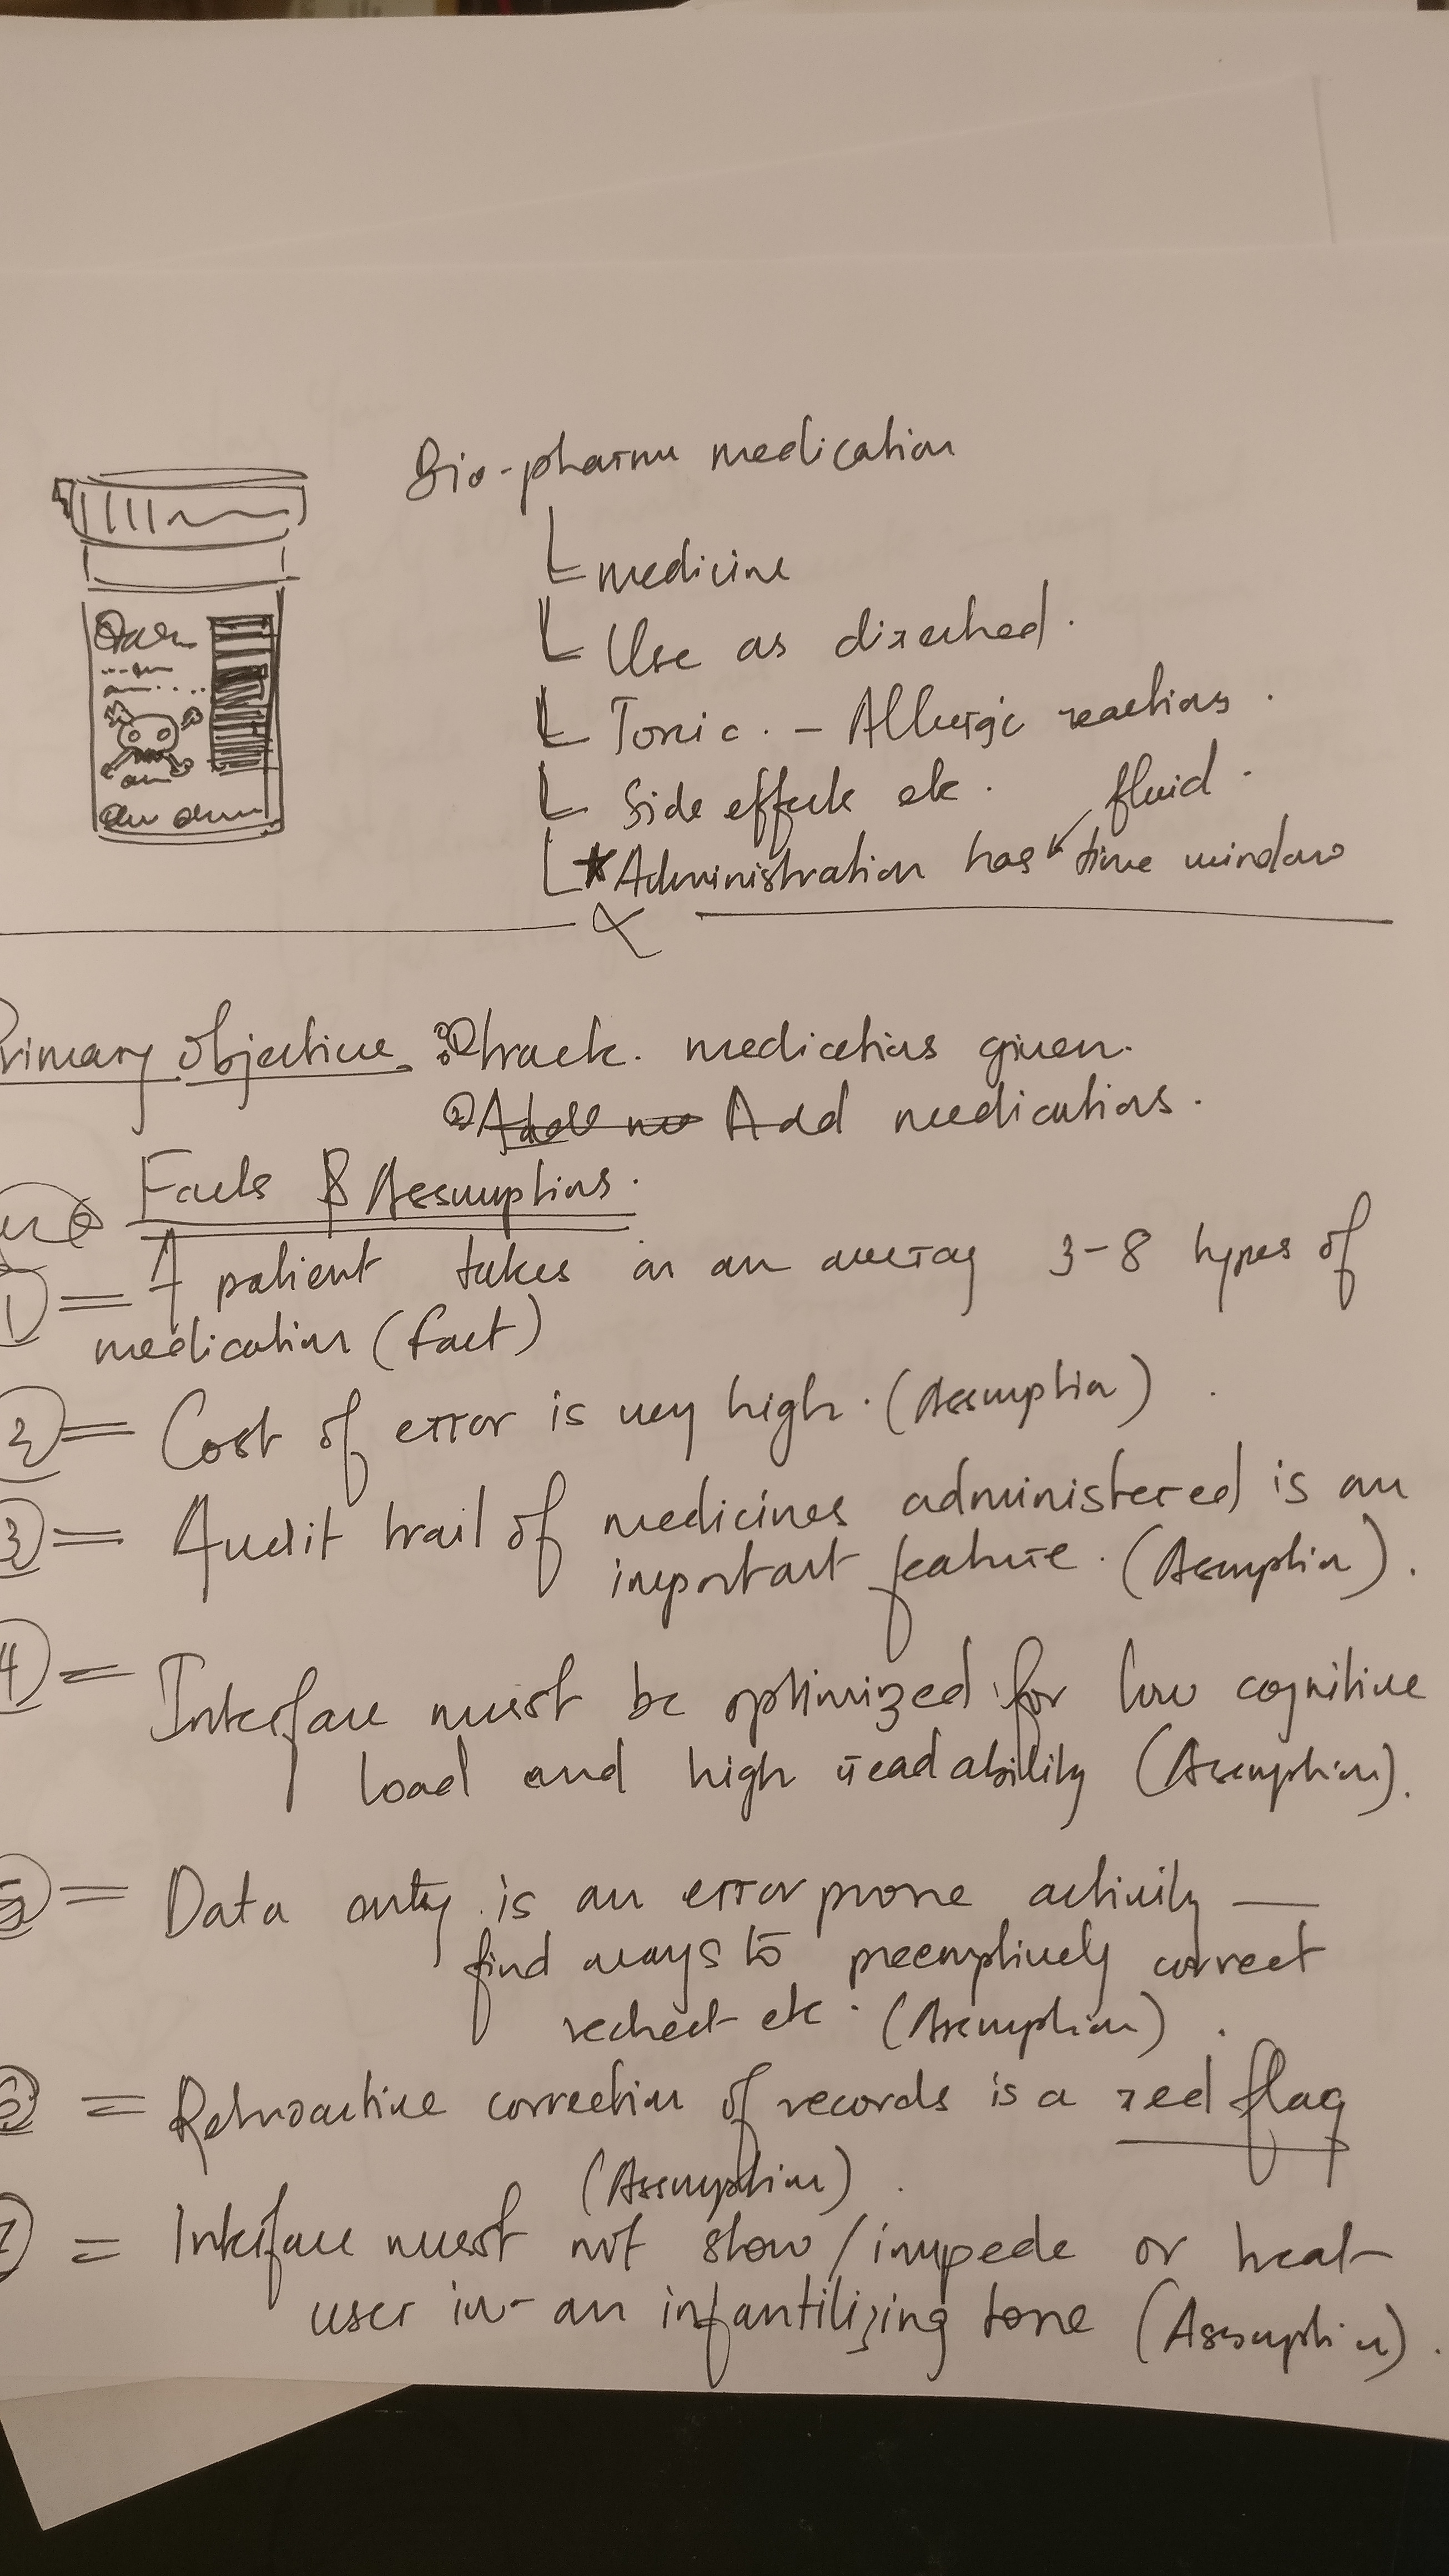 Bio-pharma medication
medicine
Use as directed.
Toxic. - Allergic reactions.
Side effects etc.
fluid.
* Administration has time window
Primary objective: ① track. medications given.
② Add medications.
Facts & Assumptions.
1) = A patient takes on an average 3-8 types of
medication (fact)
2) = Cost of error is very high. (Assumption).
3) = Audit trail of medicines administered is an
important feature. (Assumption).
4) = Interface must be optimized for low cognitive
load and high readability (Assumption).
5) = Data entry is an error prone activity —
find ways to preemptively correct
recheck etc. (Assumption).
6) = Retroactive correction of records is a red flag
(Assumption).
7) = Interface must not slow/impede or treat
user in an infantilizing tone (Assumption).